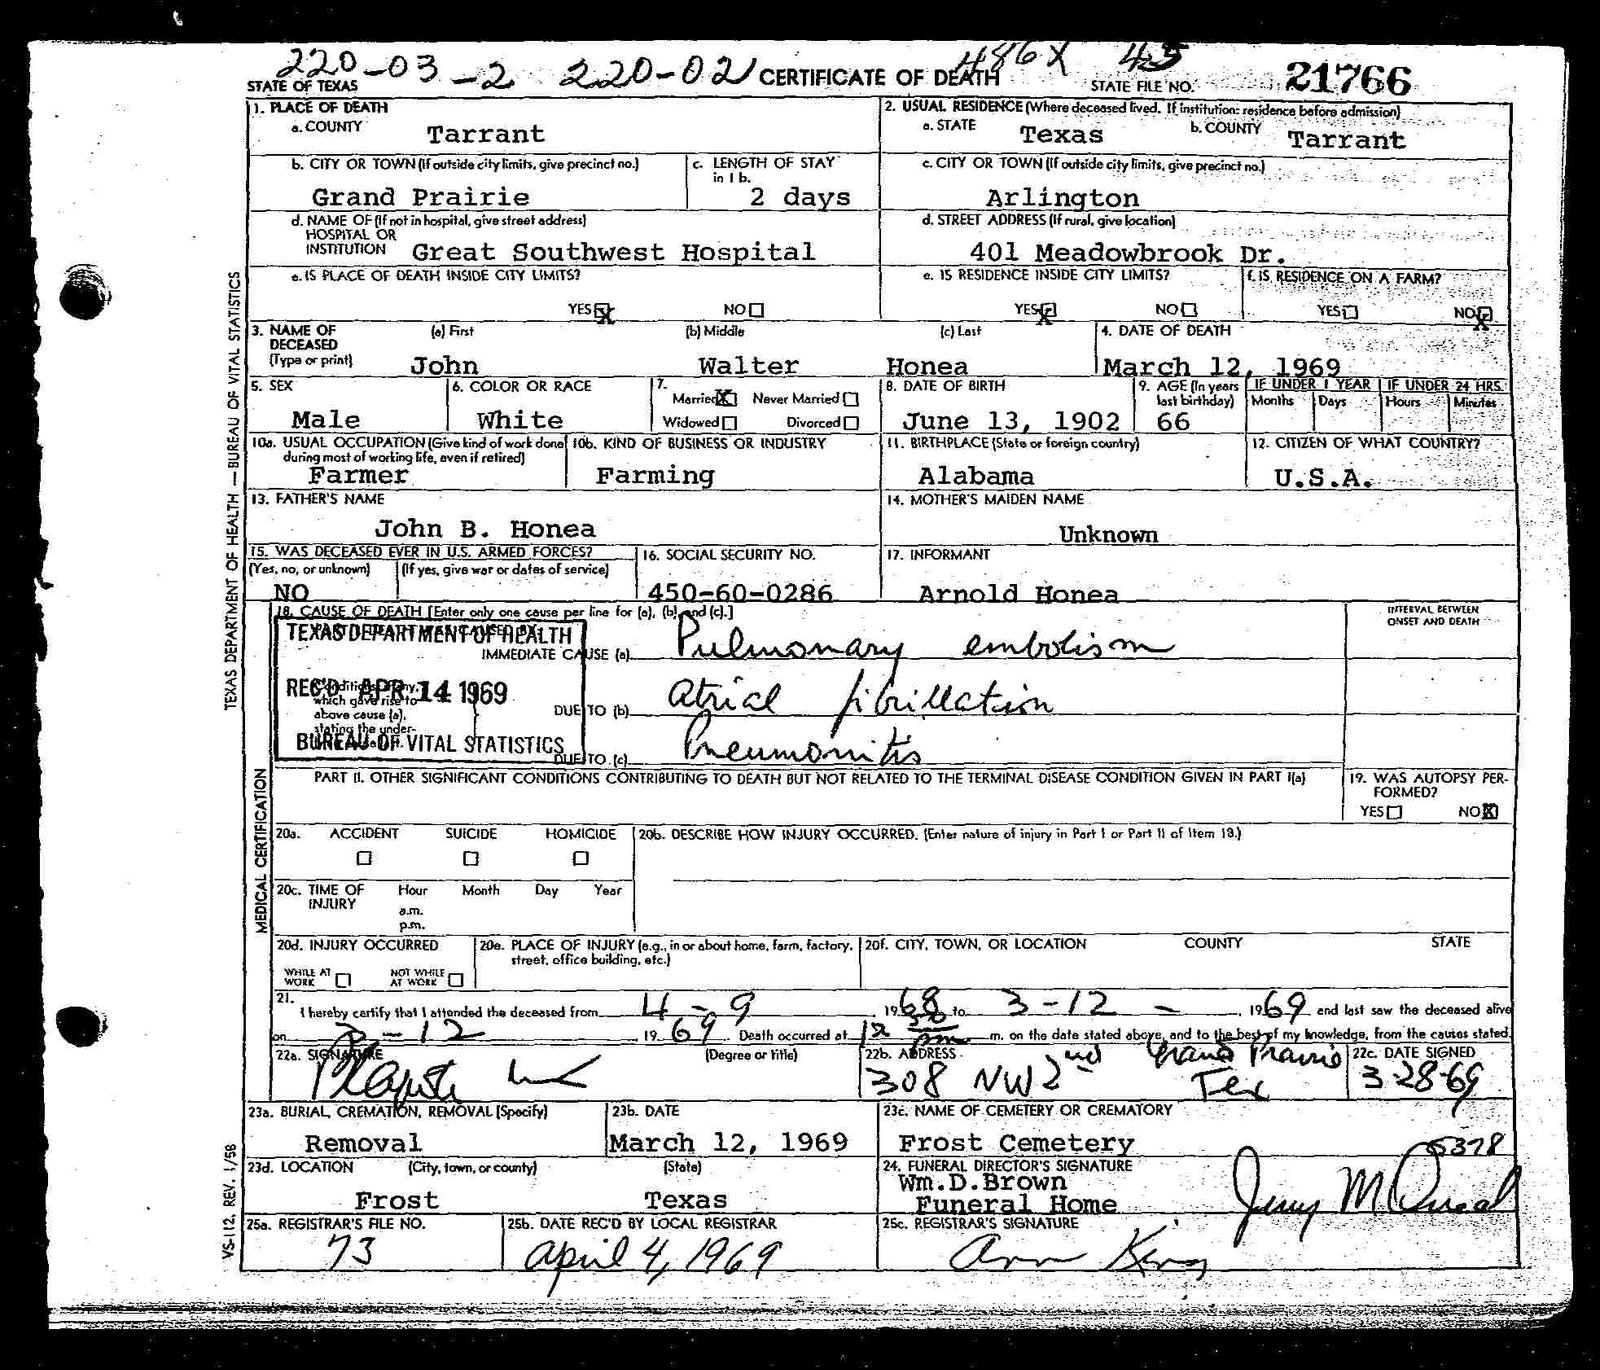 220-03-2 220-02 486X 45
STATE OF TEXAS CERTIFICATE OF DEATH STATE FILE NO. 21766
1. PLACE OF DEATH
a. COUNTY Tarrant
2. USUAL RESIDENCE (Where deceased lived. If institution: residence before admission)
a. STATE Texas b. COUNTY Tarrant
b. CITY OR TOWN (If outside city limits, give precinct no.) Grand Prairie
c. LENGTH OF STAY in 1 b. 2 days
c. CITY OR TOWN (If outside city limits, give precinct no.) Arlington
d. NAME OF (If not in hospital, give street address)
HOSPITAL OR
INSTITUTION Great Southwest Hospital
d. STREET ADDRESS (If rural, give location)
401 Meadowbrook Dr.
e. IS PLACE OF DEATH INSIDE CITY LIMITS?
YES X NO
e. IS RESIDENCE INSIDE CITY LIMITS?
YES X NO
f. IS RESIDENCE ON A FARM?
YES NO X
3. NAME OF DECEASED (Type or print)
(a) First John (b) Middle Walter (c) Last Honea
4. DATE OF DEATH
March 12, 1969
5. SEX Male
6. COLOR OR RACE White
7. Married X Never Married
Widowed Divorced
8. DATE OF BIRTH June 13, 1902
9. AGE (In years last birthday) 66
IF UNDER 1 YEAR Months Days
IF UNDER 24 HRS. Hours Minutes
10a. USUAL OCCUPATION (Give kind of work done during most of working life, even if retired) Farmer
10b. KIND OF BUSINESS OR INDUSTRY Farming
11. BIRTHPLACE (State or foreign country) Alabama
12. CITIZEN OF WHAT COUNTRY? U.S.A.
13. FATHER'S NAME John B. Honea
14. MOTHER'S MAIDEN NAME Unknown
15. WAS DECEASED EVER IN U.S. ARMED FORCES?
(Yes, no, or unknown) (If yes, give war or dates of service)
NO
16. SOCIAL SECURITY NO. 450-60-0286
17. INFORMANT Arnold Honea
18. CAUSE OF DEATH [Enter only one cause per line for (a), (b), and (c).]
INTERVAL BETWEEN ONSET AND DEATH
TEXAS DEPARTMENT OF HEALTH
REC'D APR 14 1969
BUREAU OF VITAL STATISTICS
IMMEDIATE CAUSE (a) Pulmonary embolism
which gave rise to
above cause (a),
stating the under-
DUE TO (b) Atrial fibrillation
DUE TO (c) Pneumonitis
PART II. OTHER SIGNIFICANT CONDITIONS CONTRIBUTING TO DEATH BUT NOT RELATED TO THE TERMINAL DISEASE CONDITION GIVEN IN PART I(a)
19. WAS AUTOPSY PERFORMED?
YES NO X
20a. ACCIDENT SUICIDE HOMICIDE
20b. DESCRIBE HOW INJURY OCCURRED. (Enter nature of injury in Part I or Part II of Item 18.)
20c. TIME OF INJURY Hour Month Day Year
a.m.
p.m.
20d. INJURY OCCURRED
WHILE AT WORK NOT WHILE AT WORK
20e. PLACE OF INJURY (e.g., in or about home, farm, factory, street, office building, etc.)
20f. CITY, TOWN, OR LOCATION COUNTY STATE
21. I hereby certify that I attended the deceased from 4-9 1968 to 3-12- , 1969 and last saw the deceased alive
on 3-12 1969. Death occurred at pm m. on the date stated above, and to the best of my knowledge, from the causes stated.
22a. SIGNATURE (Degree or title)
22b. ADDRESS 308 NW 2nd Grand Prairie Tex
22c. DATE SIGNED 3-28-69
23a. BURIAL, CREMATION, REMOVAL (Specify) Removal
23b. DATE March 12, 1969
23c. NAME OF CEMETERY OR CREMATORY Frost Cemetery
23d. LOCATION (City, town, or county) (State)
Frost Texas
24. FUNERAL DIRECTOR'S SIGNATURE 5378
Wm.D.Brown
Funeral Home Jerry
25a. REGISTRAR'S FILE NO. 73
25b. DATE REC'D BY LOCAL REGISTRAR April 4, 1969
25c. REGISTRAR'S SIGNATURE Ann King
TEXAS DEPARTMENT OF HEALTH — BUREAU OF VITAL STATISTICS
MEDICAL CERTIFICATION
VS-112, REV. 1/58